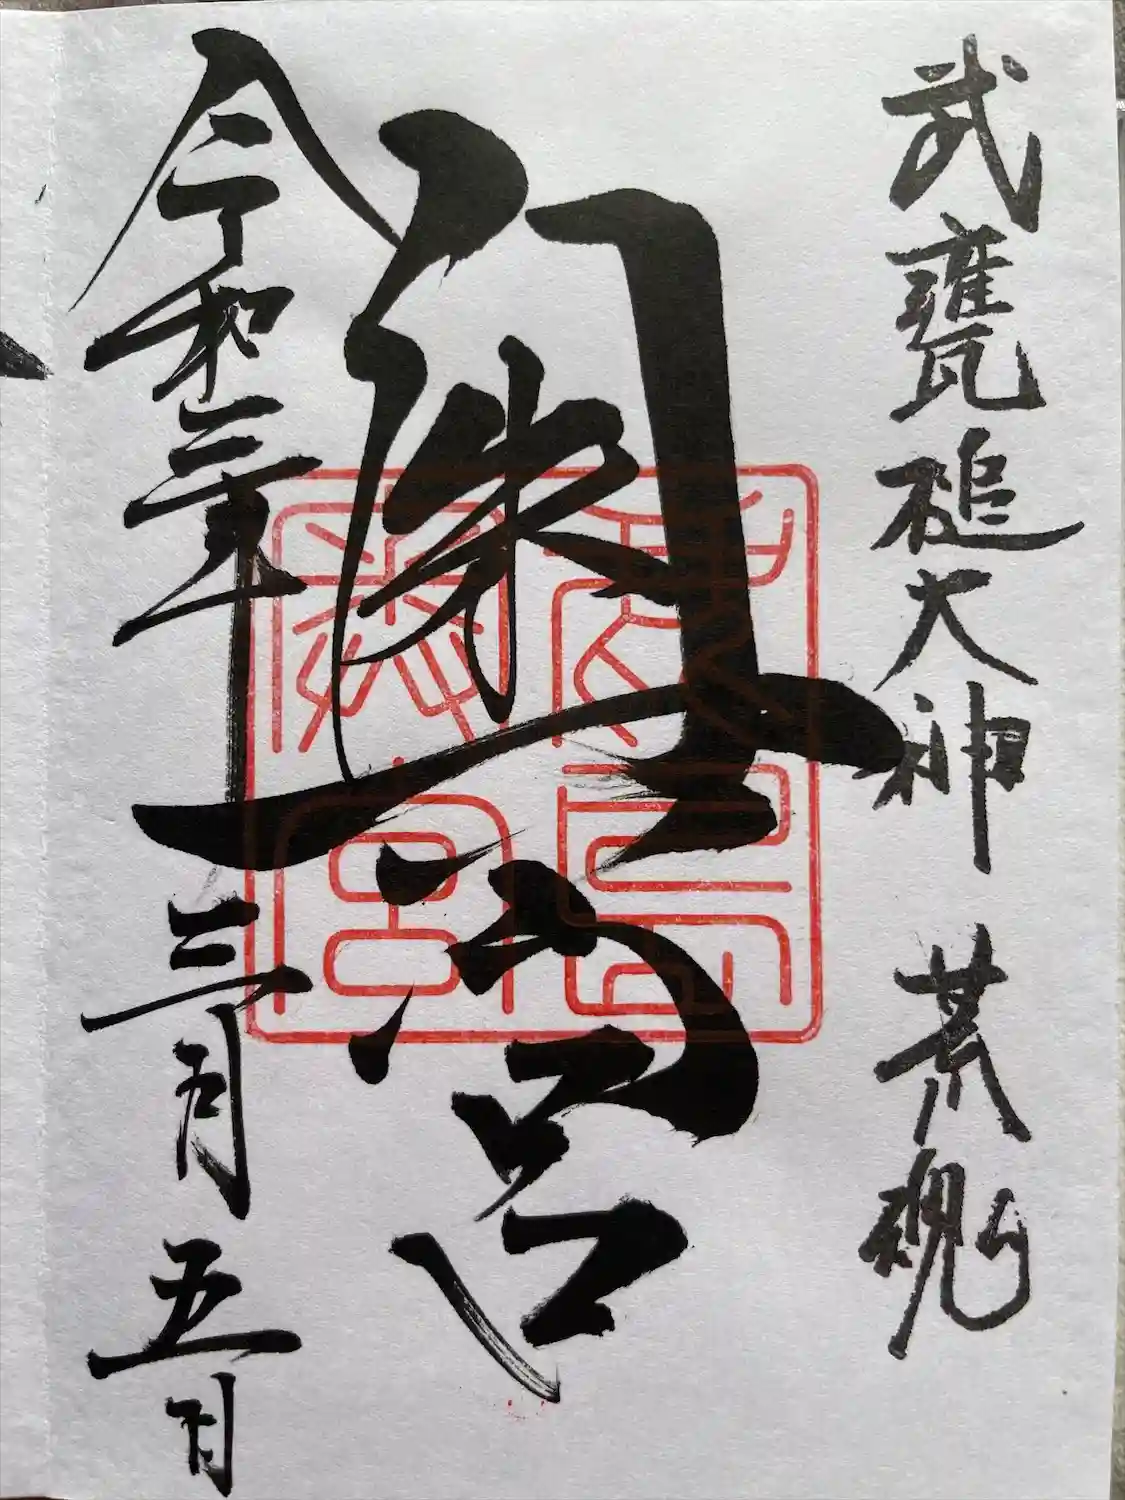 武甕槌大神 荒魂
奥宮
令和三年三月五日
鹿島奥宮